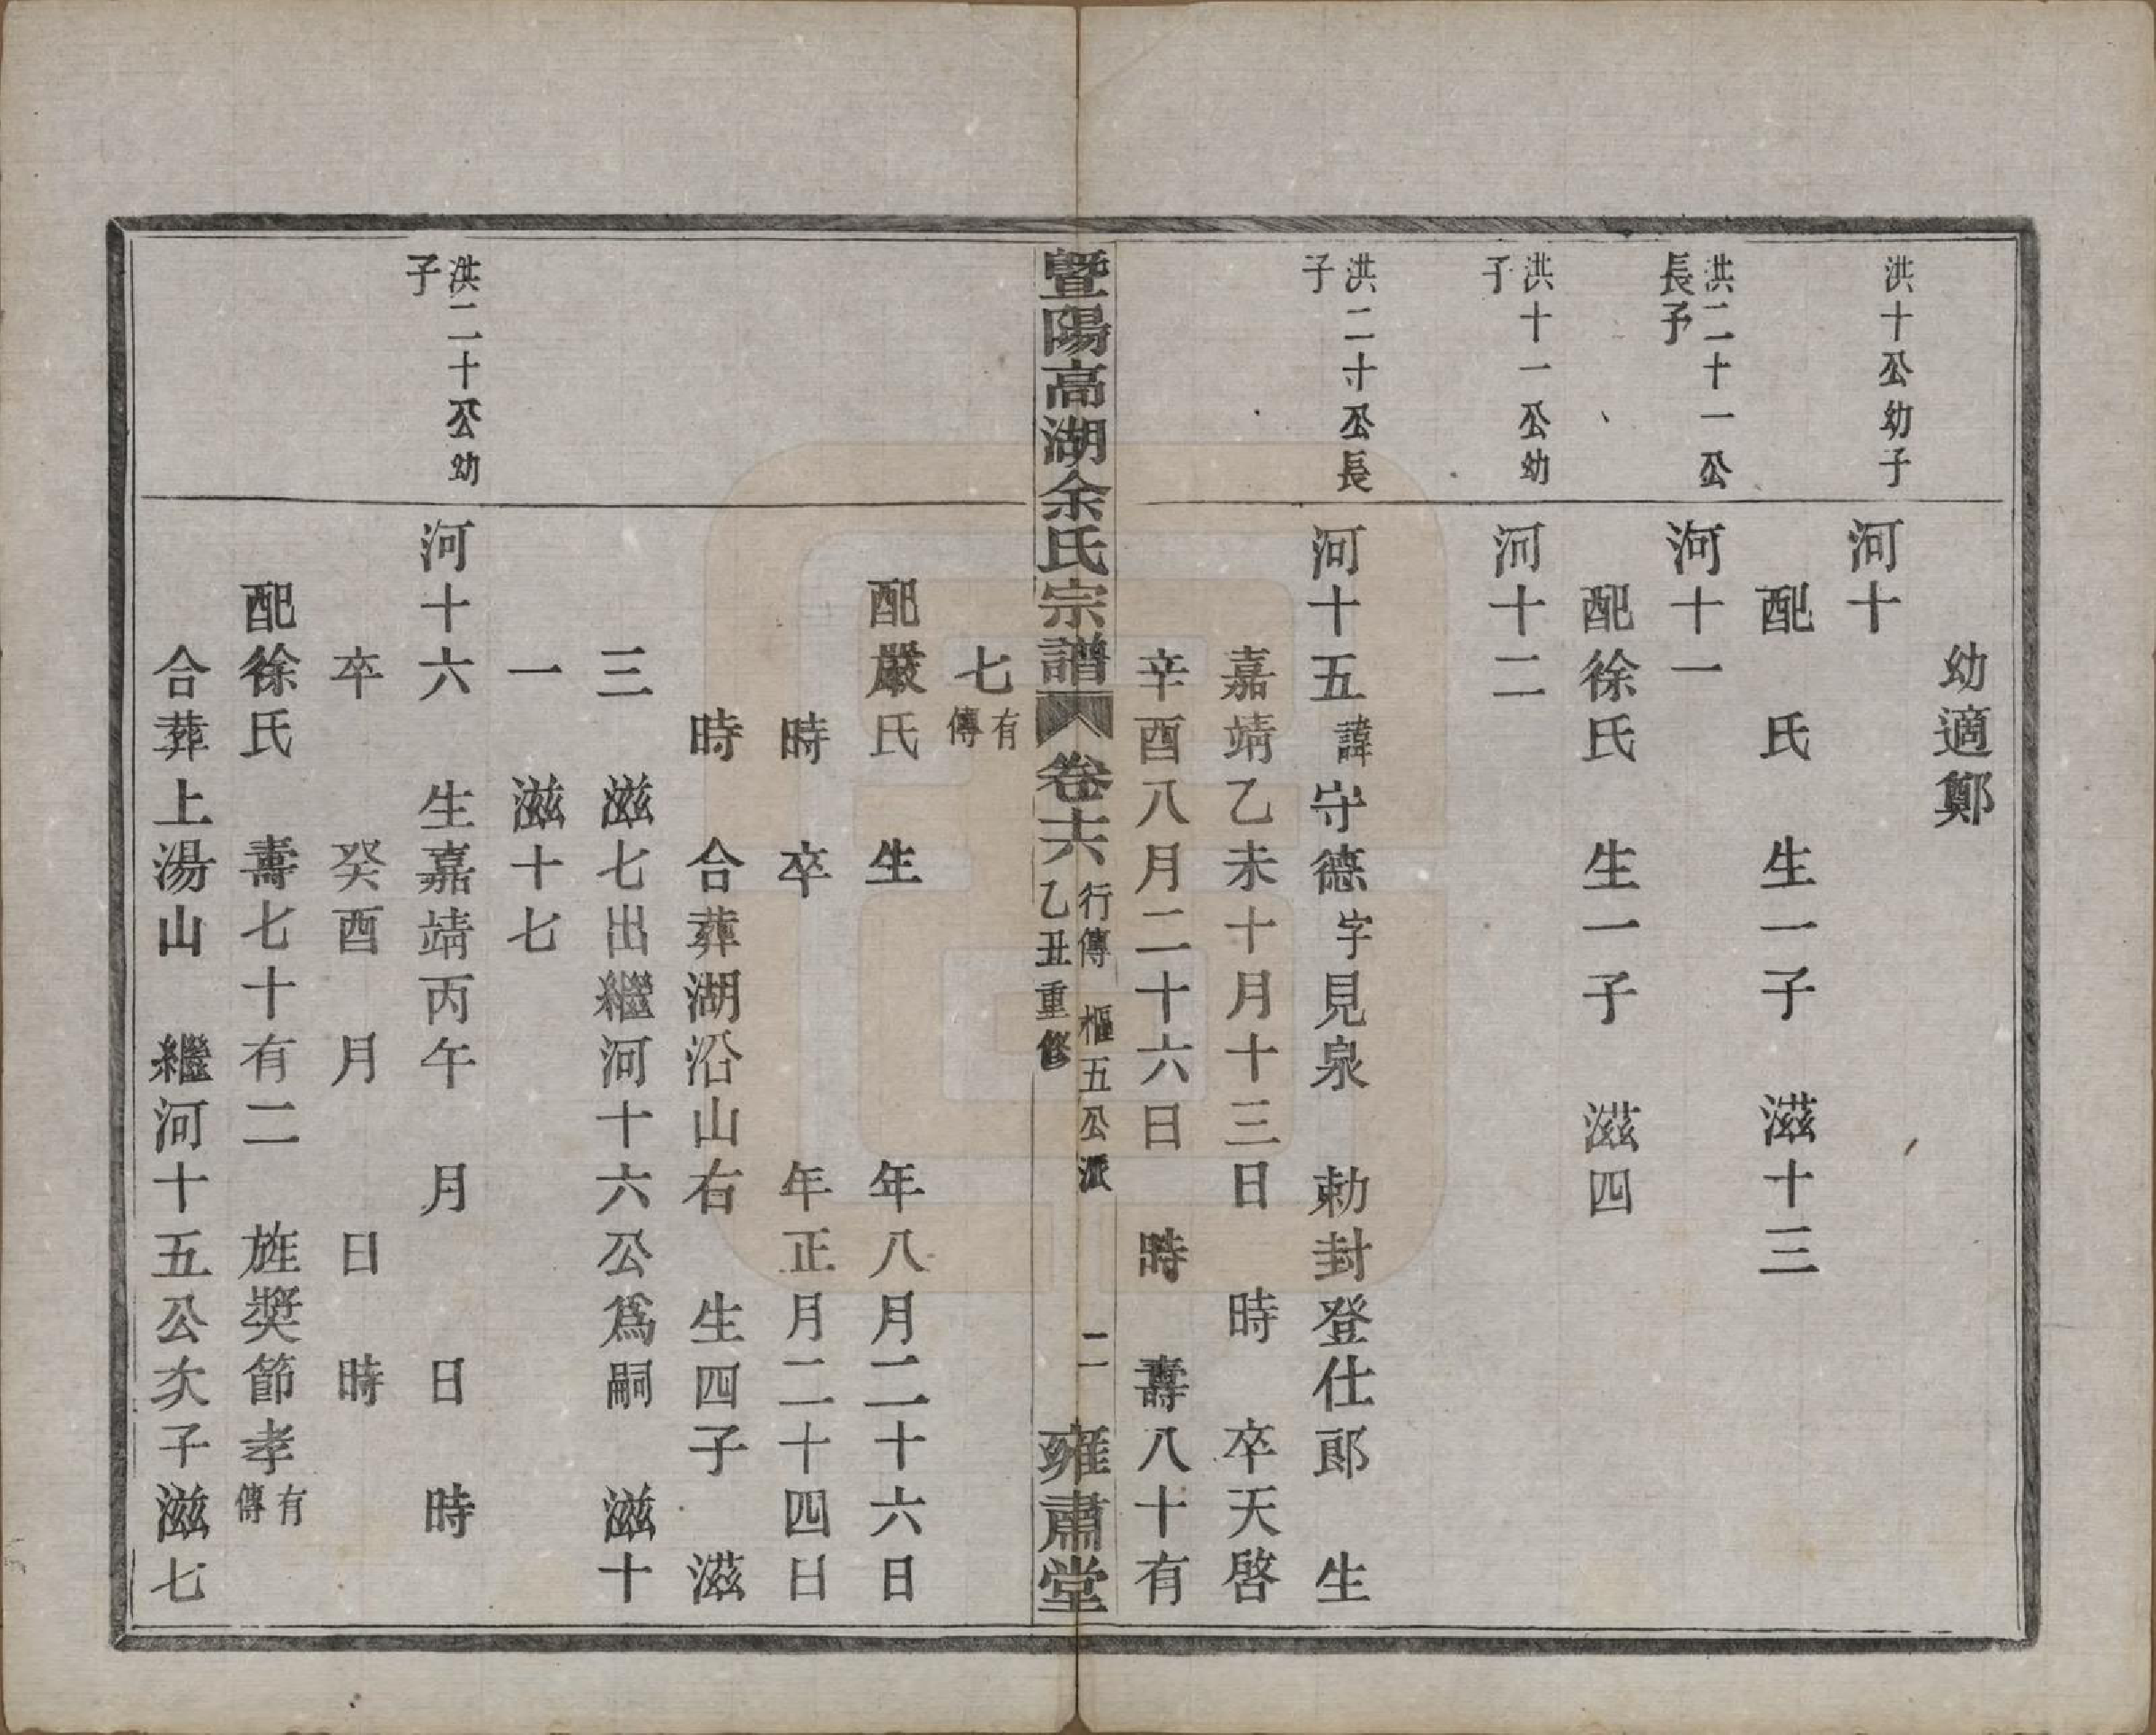 幼適鄭
洪十公幼子
河十
配　氏　生一子　滋十三
洪二十一公
長子
河十一
配徐氏　生一子　滋四
洪十一公幼
子
河十二
洪二十公長
子
河十五諱守德字見泉　勅封登仕郎　生
嘉靖乙未十月十三日　時　卒天啓
辛酉八月二十六日　時　壽八十有
暨陽高湖余氏宗譜　卷十六　行傳　樞五公派　乙丑重修　二　雍肅堂
七有傳
配嚴氏　生　年八月二十六日
時　卒　年正月二十四日
時　合葬湖沿山右　生四子　滋
三　滋七出繼河十六公爲嗣　滋十
一　滋十七
洪二十公幼
子
河十六　生嘉靖丙午　月　日　時
卒　癸酉　月　日　時
配徐氏　壽七十有二　旌奬節孝有傳
合葬上湯山　繼河十五公次子滋七